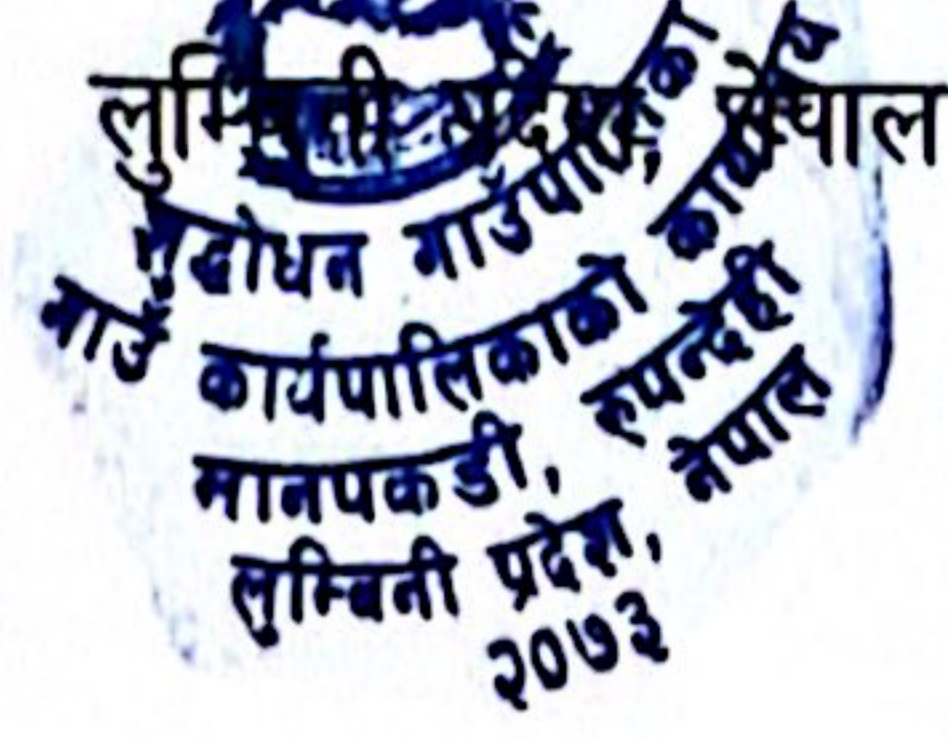 लुम्बिनी प्रदेश, नेपाल
सुद्धोधन गाउँपालिका
गाउँ कार्यपालिकाको कार्यालय
मानपकडी, रुपन्देही
लुम्बिनी प्रदेश, नेपाल
२०७३